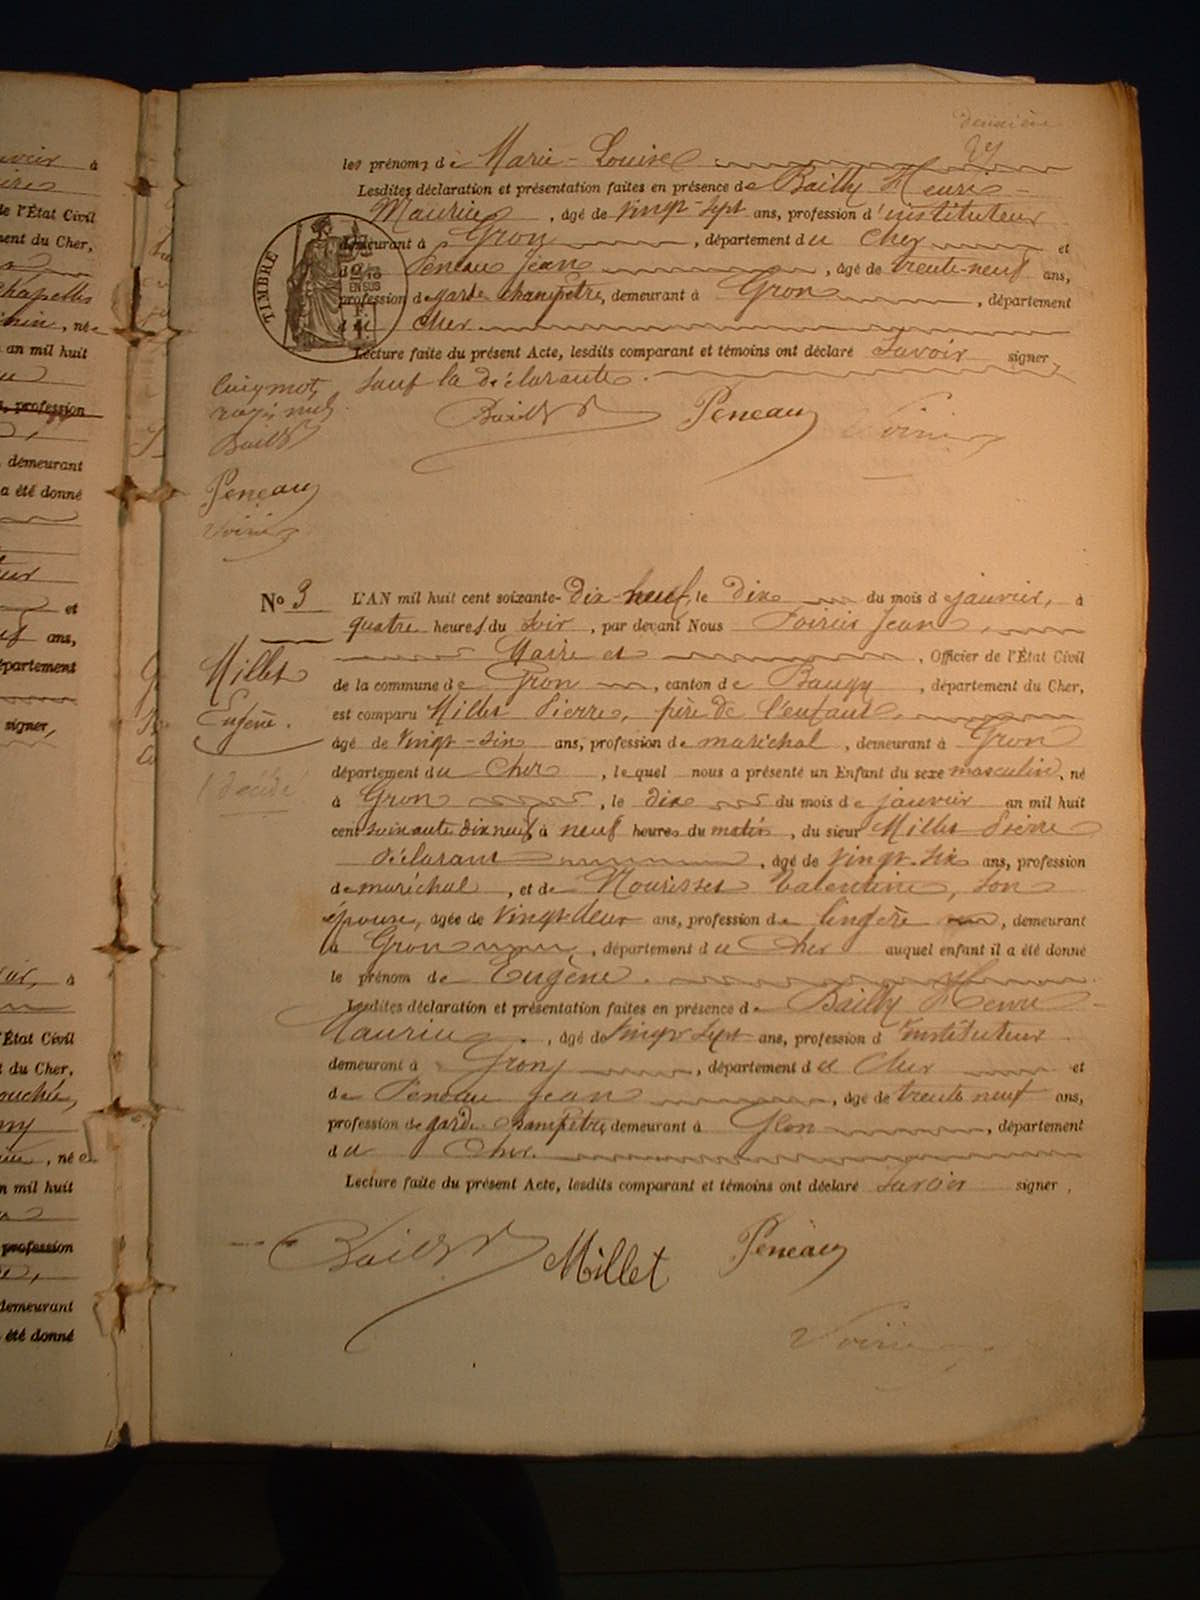 deuxième
les prénoms de Marie-Louise
Lesdites déclaration et présentation faites en présence de Bailly Henri-
Maurice, âgé de vingt-sept ans, profession d'instituteur
demeurant à Gron, département du Cher et
de Peneau Jean, âgé de trente-neuf ans,
profession de garde champêtre, demeurant à Gron, département
du Cher.
Lecture faite du présent Acte, lesdits comparant et témoins ont déclaré Savoir signer,
sauf la déclarante.
TIMBRE
EN SUS
Cinq mots
rayés nuls.
Bailly
Peneau
Bailly Peneau
No 3
Millet
Eugène.
décédé
L'AN mil huit cent soixante-dix-neuf, le dix du mois de janvier, à
quatre heures du soir, par devant Nous Poirier Jean,
Maire et, Officier de l'État Civil
de la commune de Gron, canton de Baugy, département du Cher,
est comparu Millet Pierre, père de l'enfant,
âgé de vingt-six ans, profession de maréchal, demeurant à Gron
département du Cher, lequel nous a présenté un Enfant du sexe masculin, né
à Gron, le dix du mois de janvier an mil huit
cent soixante dix neuf, à neuf heures du matin, du sieur Millet Pierre
déclarant, âgé de vingt-six ans, profession
de maréchal, et de Nourisset Valentine, son
épouse, agée de vingt-deux ans, profession de lingère, demeurant
à Gron, département du Cher auquel enfant il a été donné
le prénom de Eugène.
Lesdites déclaration et présentation faites en présence de Bailly Henri-
Maurice, âgé de vingt sept ans, profession d'instituteur
demeurant à Gron, département du Cher et
de Peneau Jean, âgé de trente neuf ans,
profession de garde champêtre, demeurant à Gron, département
du Cher.
Lecture faite du présent Acte, lesdits comparant et témoins ont déclaré Savoir signer,
Bailly Millet Peneau
à
de l'État Civil
ment du Cher,
Chapelle
, née
an mil huit
profession
demeurant
a été donné
et
ans,
département
signer,
à
l'État Civil
t du Cher,
, née
n mil huit
profession
demeurant
été donné